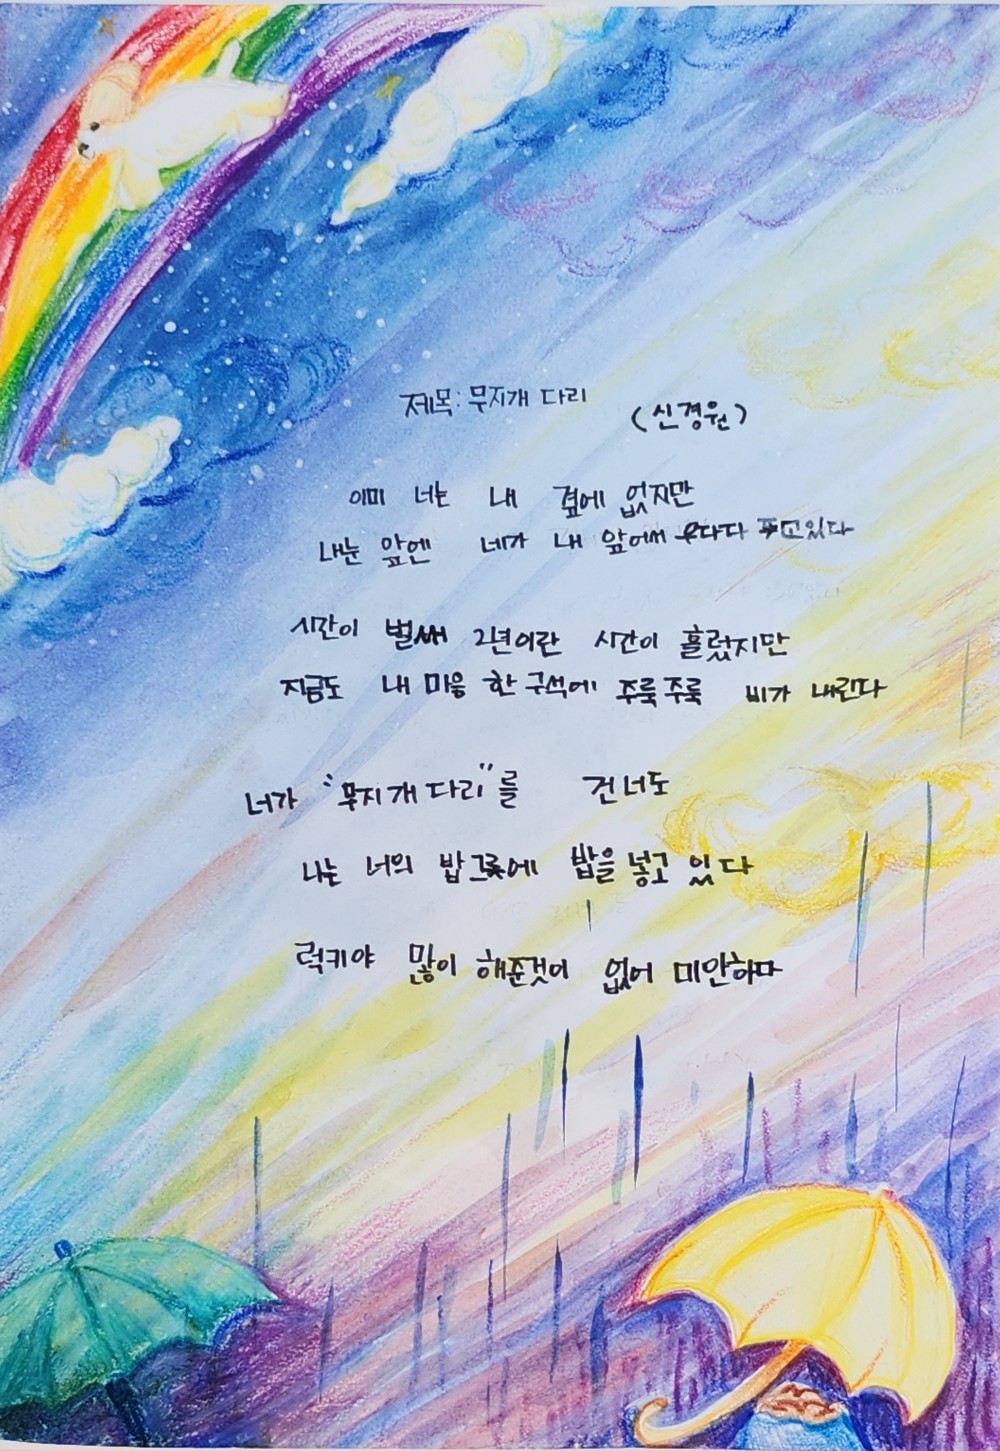 제목: 무지개 다리
(신경원)
이미 너는 내 곁에 없지만
내눈 앞엔 네가 내 앞에서 있다
시간이 벌써 2년이란 시간이 흘렀지만
지금도 내 마음 한 구석에 주룩주룩 비가 내린다
너가 "무지개 다리"를 건너도
나는 너의 밥그릇에 밥을 넣고 있다
럭키야 많이 해준것이 없어 미안하다